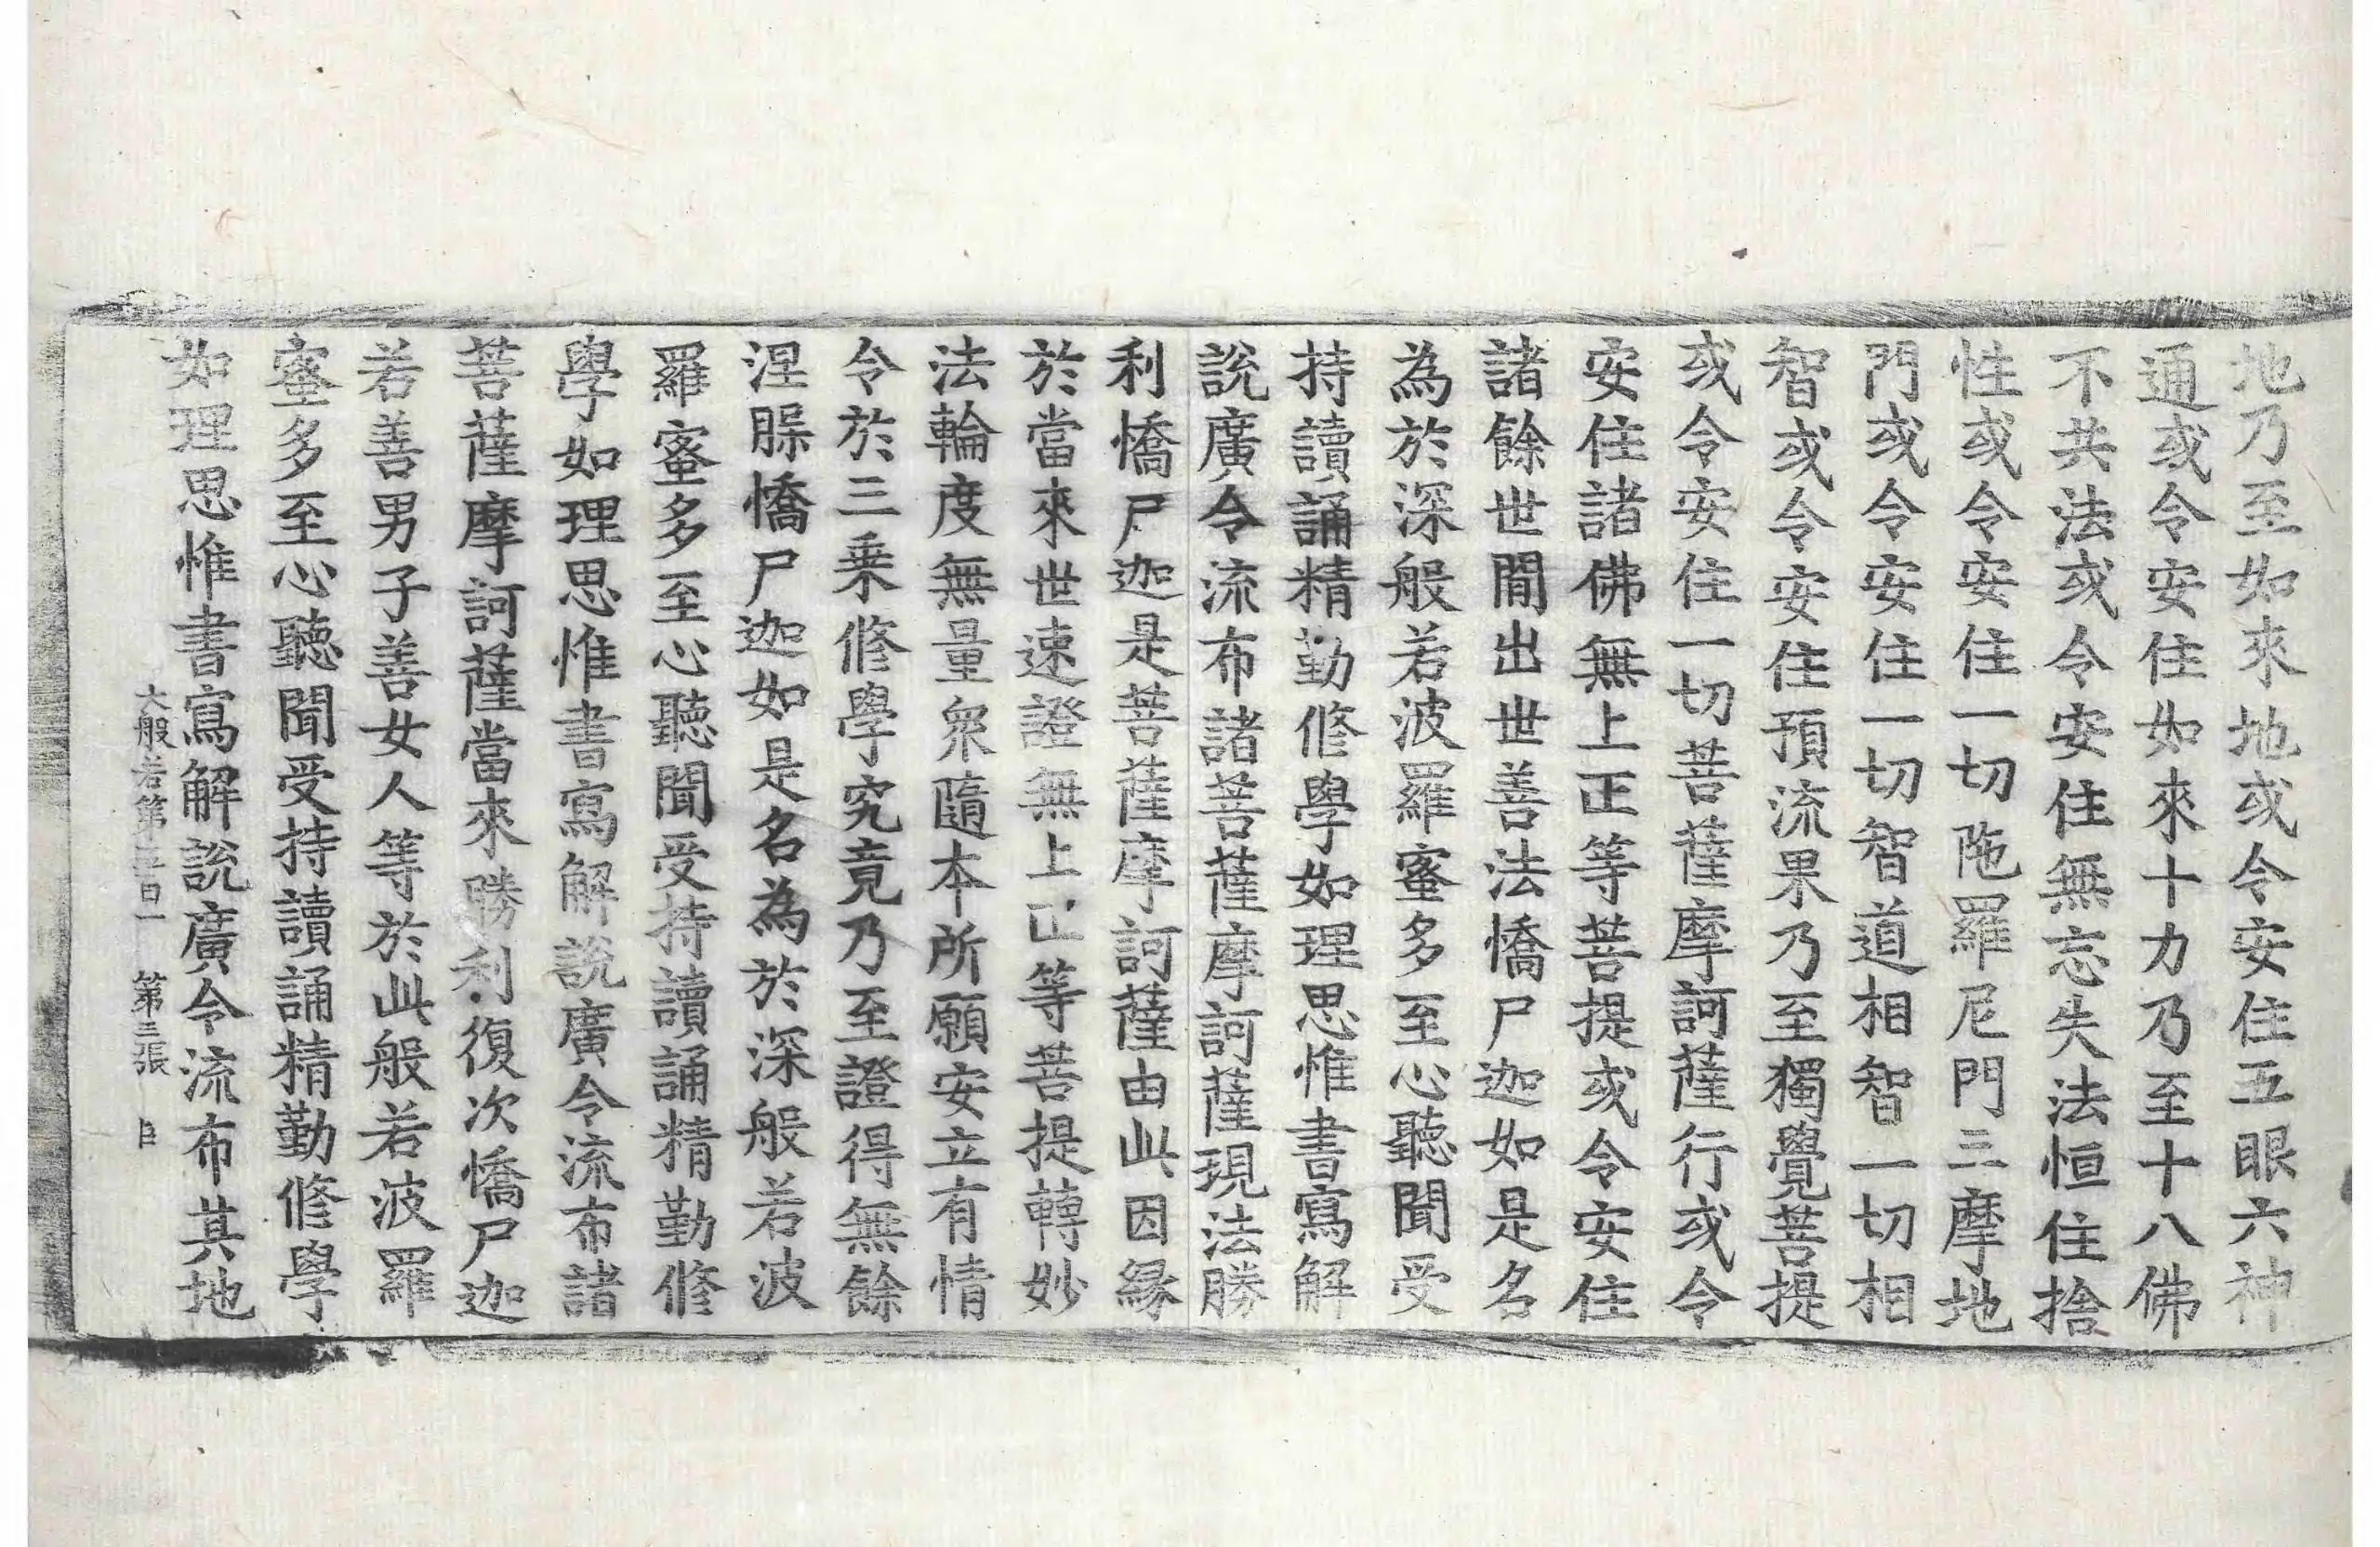 地乃至如來地或令安住五眼六神
通或令安住如來十力乃至十八佛
不共法或令安住無忘失法恒住捨
性或令安住一切陁羅尼門三摩地
門或令安住一切智道相智一切相
智或令安住預流果乃至獨覺菩提
或令安住一切菩薩摩訶薩行或令
安住諸佛無上正等菩提或令安住
諸餘世間出世善法憍尸迦如是名
為於深般若波羅蜜多至心聽聞受
持讀誦精勤修學如理思惟書寫解
說廣令流布諸菩薩摩訶薩現法勝
利憍尸迦是菩薩摩訶薩由此因緣
於當來世速證無上正等菩提轉妙
法輪度無量衆隨本所願安立有情
令於三乗修學究竟乃至證得無餘
涅䏶憍尸迦如是名為於深般若波
羅蜜多至心聽聞受持讀誦精勤修
學如理思惟書寫解說廣令流布諸
菩薩摩訶薩當來勝利復次憍尸迦
若善男子善女人等於此般若波羅
蜜多至心聽聞受持讀誦精勤修學
如理思惟書寫解說廣令流布其地
大般若第三百一 第三張